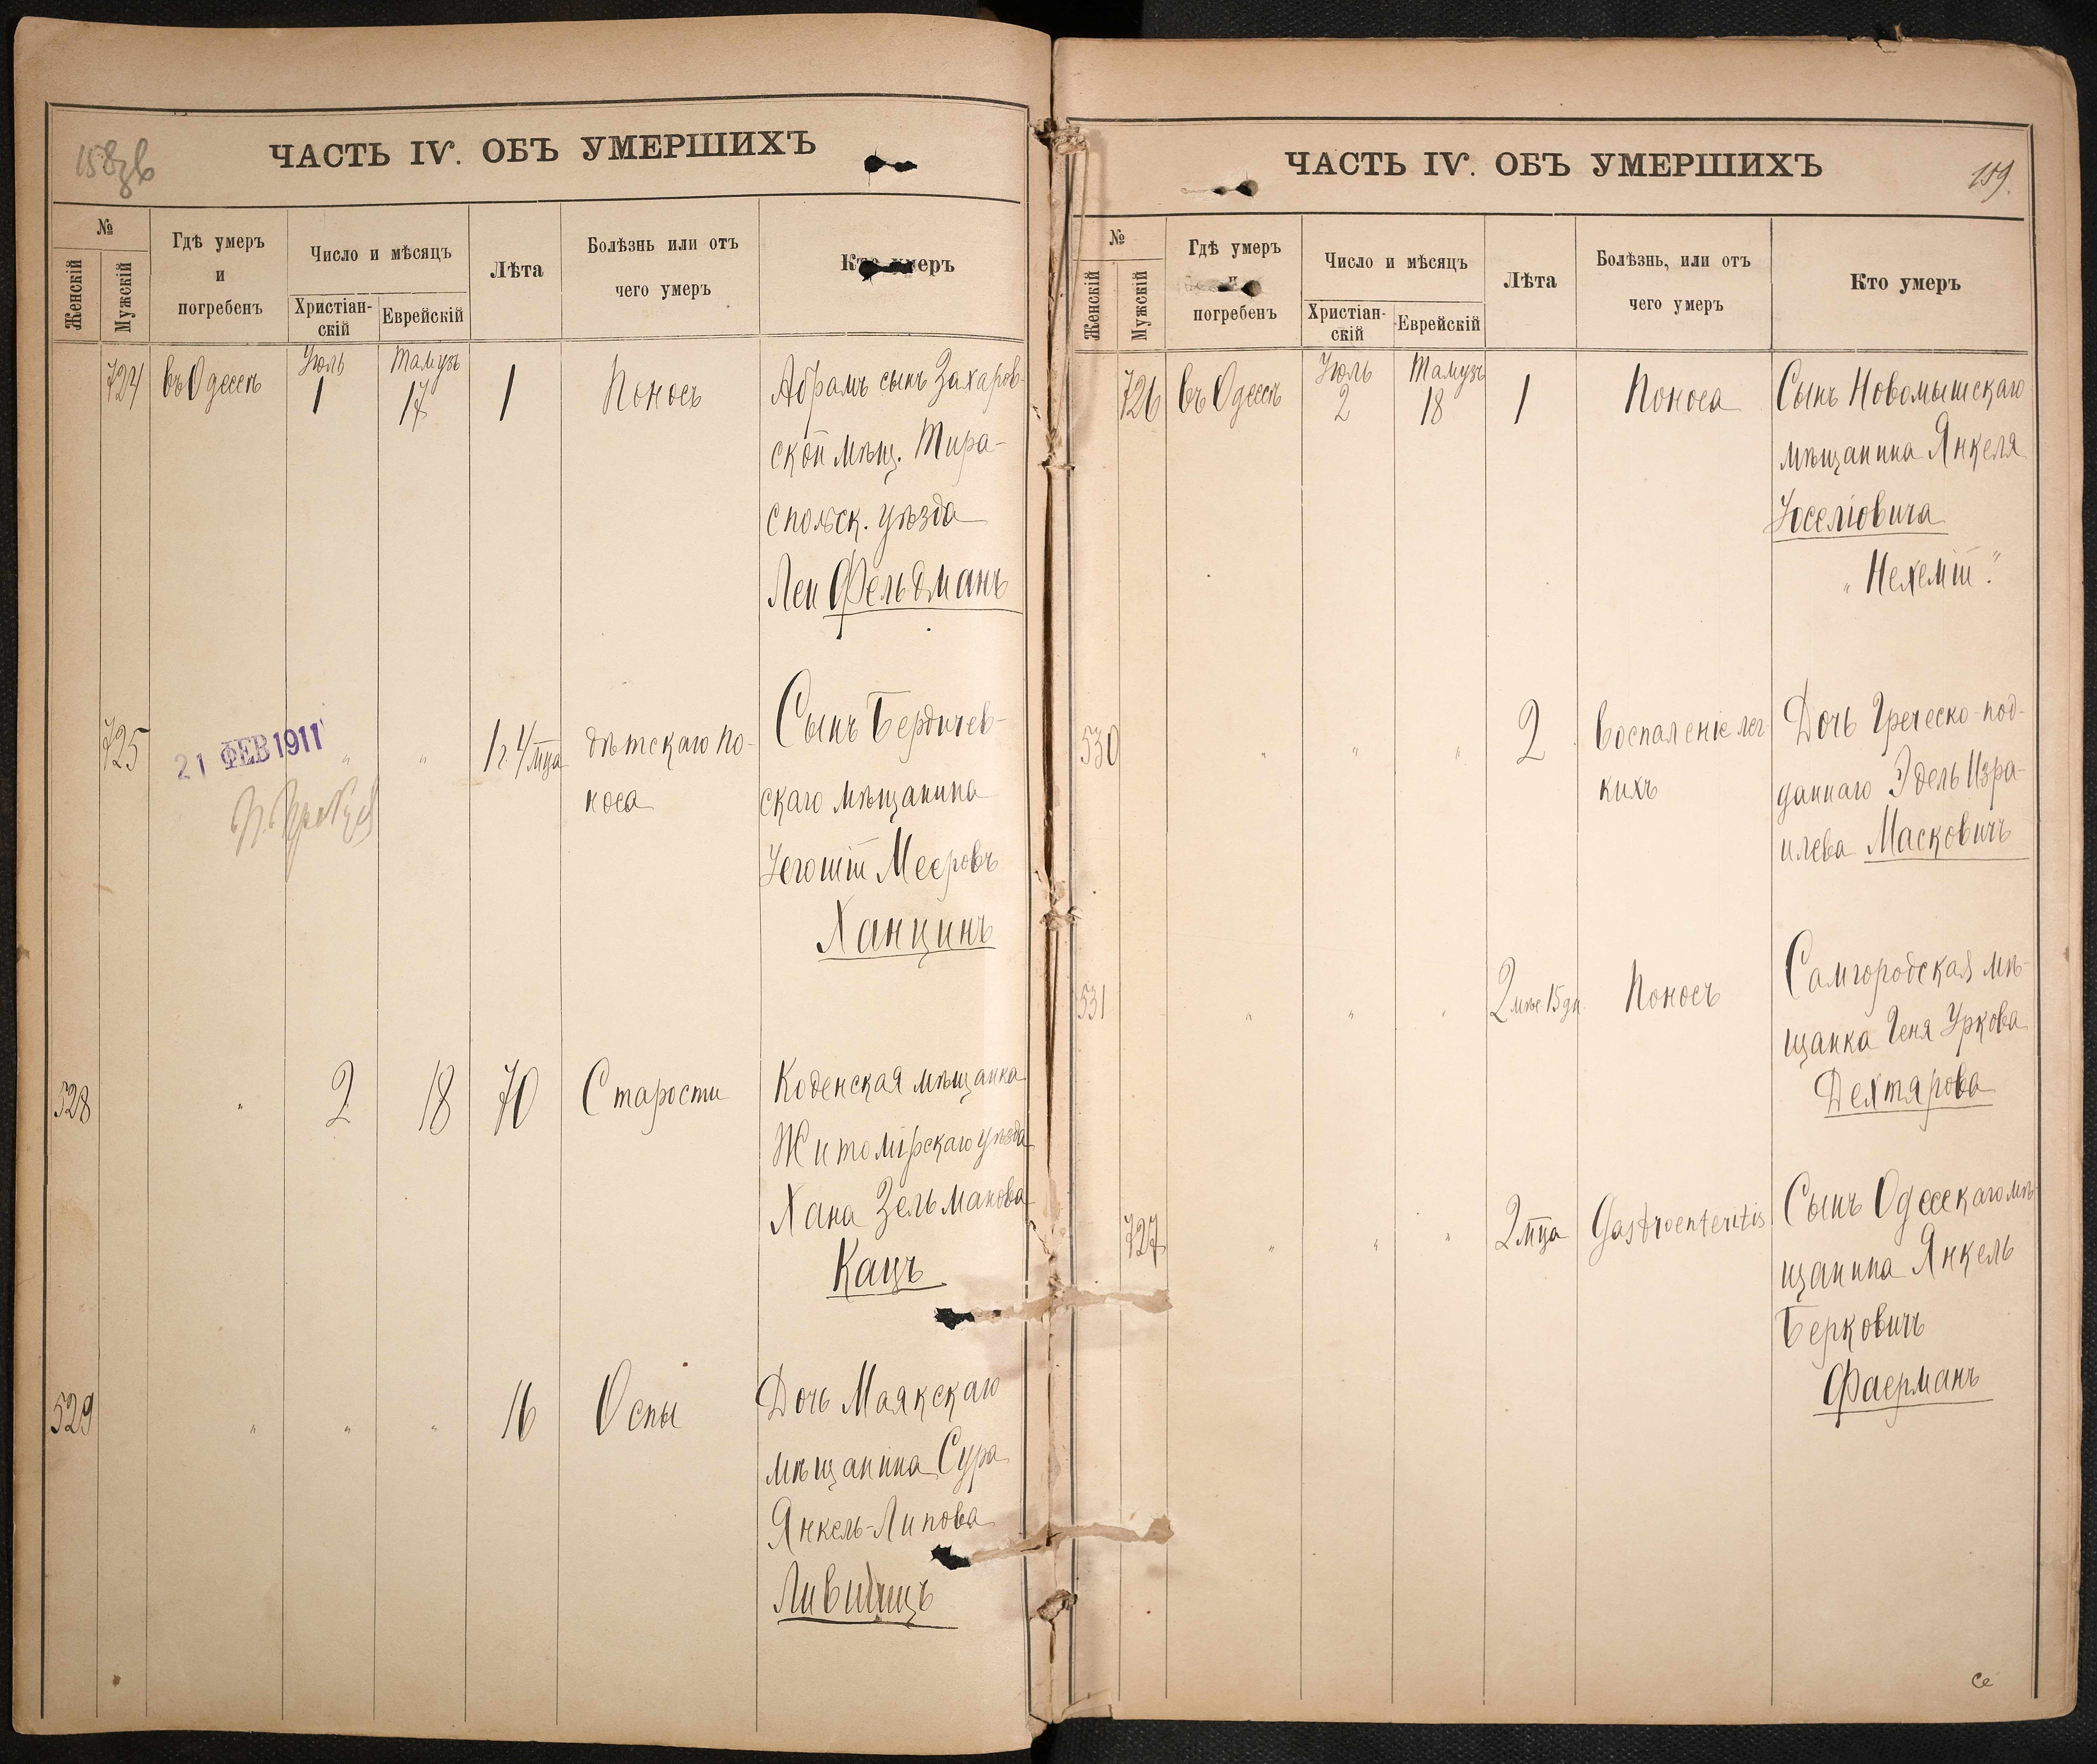 158об
ЧАСТЬ IV. ОБЪ УМЕРШИХЪ
№
Женскій
Мужскій
Гдѣ умеръ
и
погребенъ
Число и мѣсяцъ
Христіан-
скій
Еврейскій
Лѣта
Болѣзнь или отъ
чего умеръ
Кто умеръ
724 въ Одессѣ Іюль 1 Тамузъ 17 1 Поносъ Абрамъ сынъ Захаров-
ской мѣщ. Тира-
спольск. уѣзда
Леи Фельдманъ
725 " " 1 г. 4 мца дѣтскаго по- Сынъ Бердичев-
21 ФЕВ 1911
носа скаго мѣщанина
Іегошіи Мееровъ
Ханцинъ
528 " 2 18 70 Старости Коденская мѣщанка
Житомірскаго уѣзда
Хана Зельманова
Кацъ
529 " " " 16 Оспы Дочь Маякскаго
мѣщанина Сура
Янкель-Липова
Лившицъ
159.
ЧАСТЬ IV. ОБЪ УМЕРШИХЪ
№
Женскій
Мужскій
Гдѣ умеръ
и
погребенъ
Число и мѣсяцъ
Христіан-
скій
Еврейскій
Лѣта
Болѣзнь, или отъ
чего умеръ
Кто умеръ
726 въ Одессѣ Іюль 2 Тамузъ 18 1 Поноса Сынъ Новомышскаго
мѣщанина Янкеля
Іоселіовича
"Нехемія."
530 " " " 2 Воспаленіе лег- Дочь Греческо-под-
кихъ даннаго Эдель Изра-
илева Масковичъ
531 " " " 2 мѣс 15 дн. Поносъ Самгородская мѣ-
щанка Геня Уркова
Дехтярова
727 " " " 2 мца Gastroenteritis Сынъ Одесскаго мѣ-
щанина Янкель
Берковичъ
Фаерманъ
Се